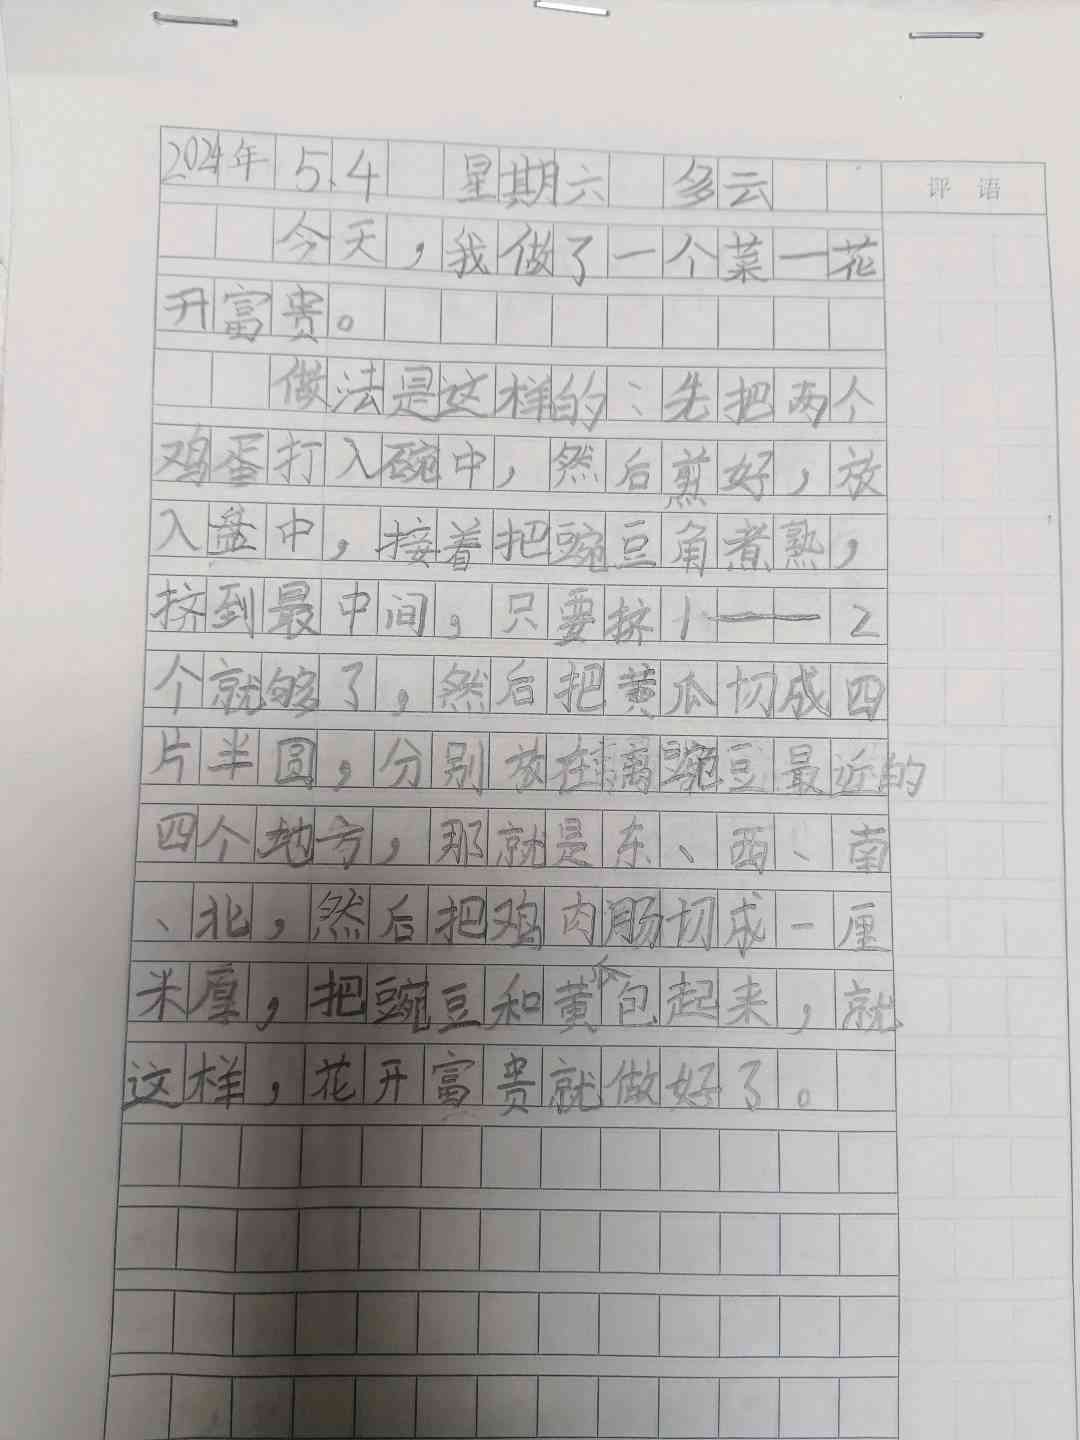 2024年 5.4 星期六 多云 评语
今天，我做了一个菜一花
开富贵。
做法是这样的：先把两个
鸡蛋打入碗中，然后煎好，放
入盘中，接着把豌豆角煮熟，
挤到最中间，只要挤1——2
个就够了，然后把黄瓜切成四
片半圆，分别放在离豌豆最近的
四个地方，那就是东、西、南
、北，然后把鸡肉肠切成一厘
米厚，把豌豆和黄瓜包起来，就
这样，花开富贵就做好了。